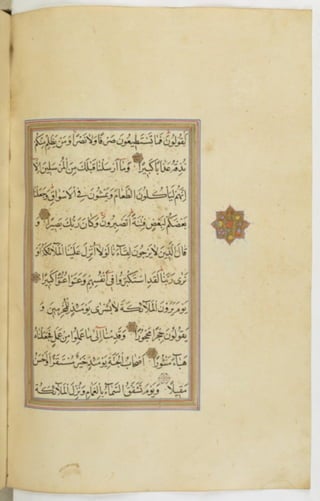 تَقُولُونَ فَمَا تَسْتَطِيعُونَ صَرْفًا وَلَا نَصْرًا وَمَنْ يَظْلِمْ مِنْكُمْ
نُذِقْهُ عَذَابًا كَبِيرًا وَمَا أَرْسَلْنَا قَبْلَكَ مِنَ الْمُرْسَلِينَ إِلَّا
إِنَّهُمْ لَيَأْكُلُونَ الطَّعَامَ وَيَمْشُونَ فِي الْأَسْوَاقِ وَجَعَلْنَا
بَعْضَكُمْ لِبَعْضٍ فِتْنَةً أَتَصْبِرُونَ وَكَانَ رَبُّكَ بَصِيرًا وَ
قَالَ الَّذِينَ لَا يَرْجُونَ لِقَاءَنَا لَوْلَا أُنْزِلَ عَلَيْنَا الْمَلَائِكَةُ أَوْ
نَرَى رَبَّنَا لَقَدِ اسْتَكْبَرُوا فِي أَنْفُسِهِمْ وَعَتَوْا عُتُوًّا كَبِيرًا
يَوْمَ يَرَوْنَ الْمَلَائِكَةَ لَا بُشْرَى يَوْمَئِذٍ لِلْمُجْرِمِينَ وَ
يَقُولُونَ حِجْرًا مَحْجُورًا وَقَدِمْنَا إِلَى مَا عَمِلُوا مِنْ عَمَلٍ فَجَعَلْنَاهُ
هَبَاءً مَنْثُورًا أَصْحَابُ الْجَنَّةِ يَوْمَئِذٍ خَيْرٌ مُسْتَقَرًّا وَأَحْسَنُ
مَقِيلًا وَيَوْمَ تَشَقَّقُ السَّمَاءُ بِالْغَمَامِ وَنُزِّلَ الْمَلَائِكَةُ